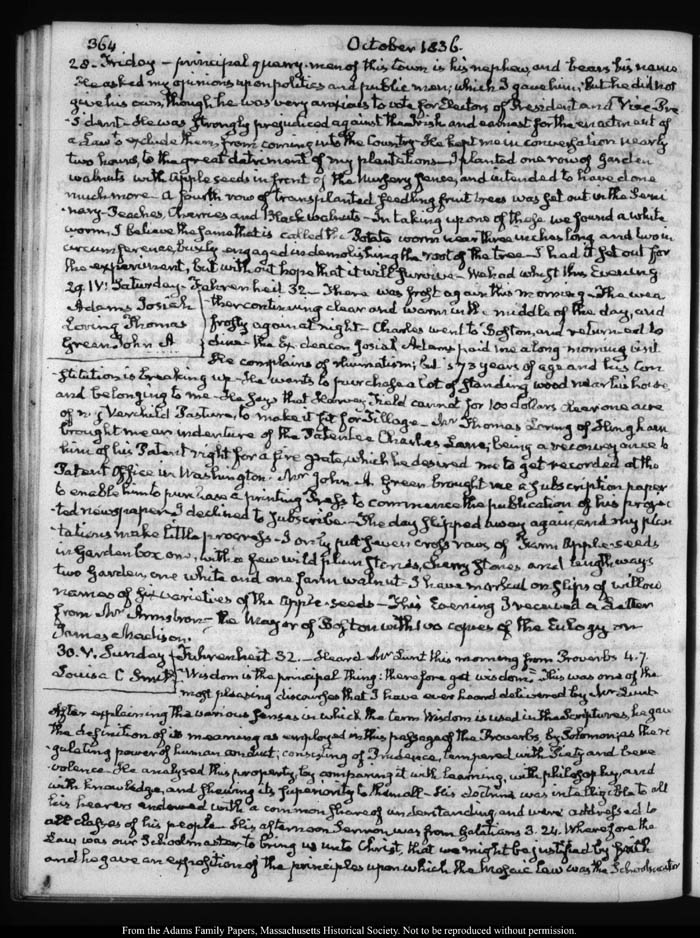 364 October 1836.
28. Friday — principal quarry-men of this town is his nephew, and bears his name
He asked my opinions upon politics and public men, which I gave him, but he did not
give his own, though he was very anxious to vote for Electors of President and Vice-Pre-
-sident. He was strongly prejudiced against the Irish and earnest for the enactment of
a Law to exclude them from coming into the Country. He kept me in conversation nearly
two hours, to the great detriment of my plantations — I planted one row of garden
walnuts with Apple seeds in front of the Nursery fence, and intended to have done
much more — A fourth row of transplanted seedling fruit trees was set out in the Semi
-nary — Peaches, Cherries and Black walnuts — In taking up one of these we found a white
worm, I believe the same that is called the Potatoe worm near three inches long and two in
circumference, busily engaged in demolishing the root of the tree — I had it set out for
the experiment, but without hope that it will survive — We had whist this Evening
29. IV. Saturday. Fahrenheit 32 — There was frost again this morning — The wea
Adams Josiah
Loring Thomas
Green John A
ther continuing clear and warm in the middle of the day, and
frosty again at night — Charles went to Boston, and returned to
dine — The Ex-deacon Josiah Adams paid me a long morning visit
He complains of rheumatism; but is 73 years of age and his con
-stitution is breaking up — He wants to purchase a Lot of standing wood near his house
and belonging to me — He says that Harvey Field cannot for 100 dollars clear one acre
of my Verchild Pasture, to make it fit for Tillage — Mr Thomas Loring of Hingham
brought me an indenture of the Patentee Charles Lane, being a reconveyance to
him of his Patent right for a fire grate, which he desired me to get recorded at the
Patent Office in Washington. Mr John A. Green brought me a subscription paper
to enable him to purchase a printing Press to commence the publication of his projec
-ted newspaper. I declined to subscribe — The day slipped away again, and my plan
-tations make little progress — I only put seven cross rows of Farm Apple-seeds
in Garden box one, with a few wild plum stones, cherry stones and lengthways
two Garden, one white and one farm walnut — I have marked on slips of willow
names of six varieties of the apple-seeds — This Evening I received a Letter
from Mr Armstrong the Mayor of Boston with 100 copies of the Eulogy on
James Madison.
30. V. Sunday
Louisa C Smith
Fahrenheit 32. — Heard Mr Lunt this morning from Proverbs 4. 7.
Wisdom is the principal thing: therefore get wisdom — This was one of the
most pleasing discourses that I have ever heard delivered by Mr Lunt
After explaining the various senses in which the term Wisdom is used in the Scriptures, he gave
the definition of its meaning as employed in this passage of the Proverbs, by Solomon; as the re
-gulating power of human conduct; consisting of Prudence, tempered with Piety and bene
-volence — He analysed this property, by comparing it with learning, with philosophy, and
with knowledge, and shewing its superiority to them all — His doctrine was intelligible to all
his hearers endowed with a common share of understanding, and were addressed to
all classes of his people — His afternoon Sermon was from Galatians 3. 24. Wherefore the
Law was our Schoolmaster to bring us unto Christ, that we might be justified by faith
and he gave an exposition of the principles upon which the Mosaic Law was the Schoolmaster
From the Adams Family Papers, Massachusetts Historical Society. Not to be reproduced without permission.